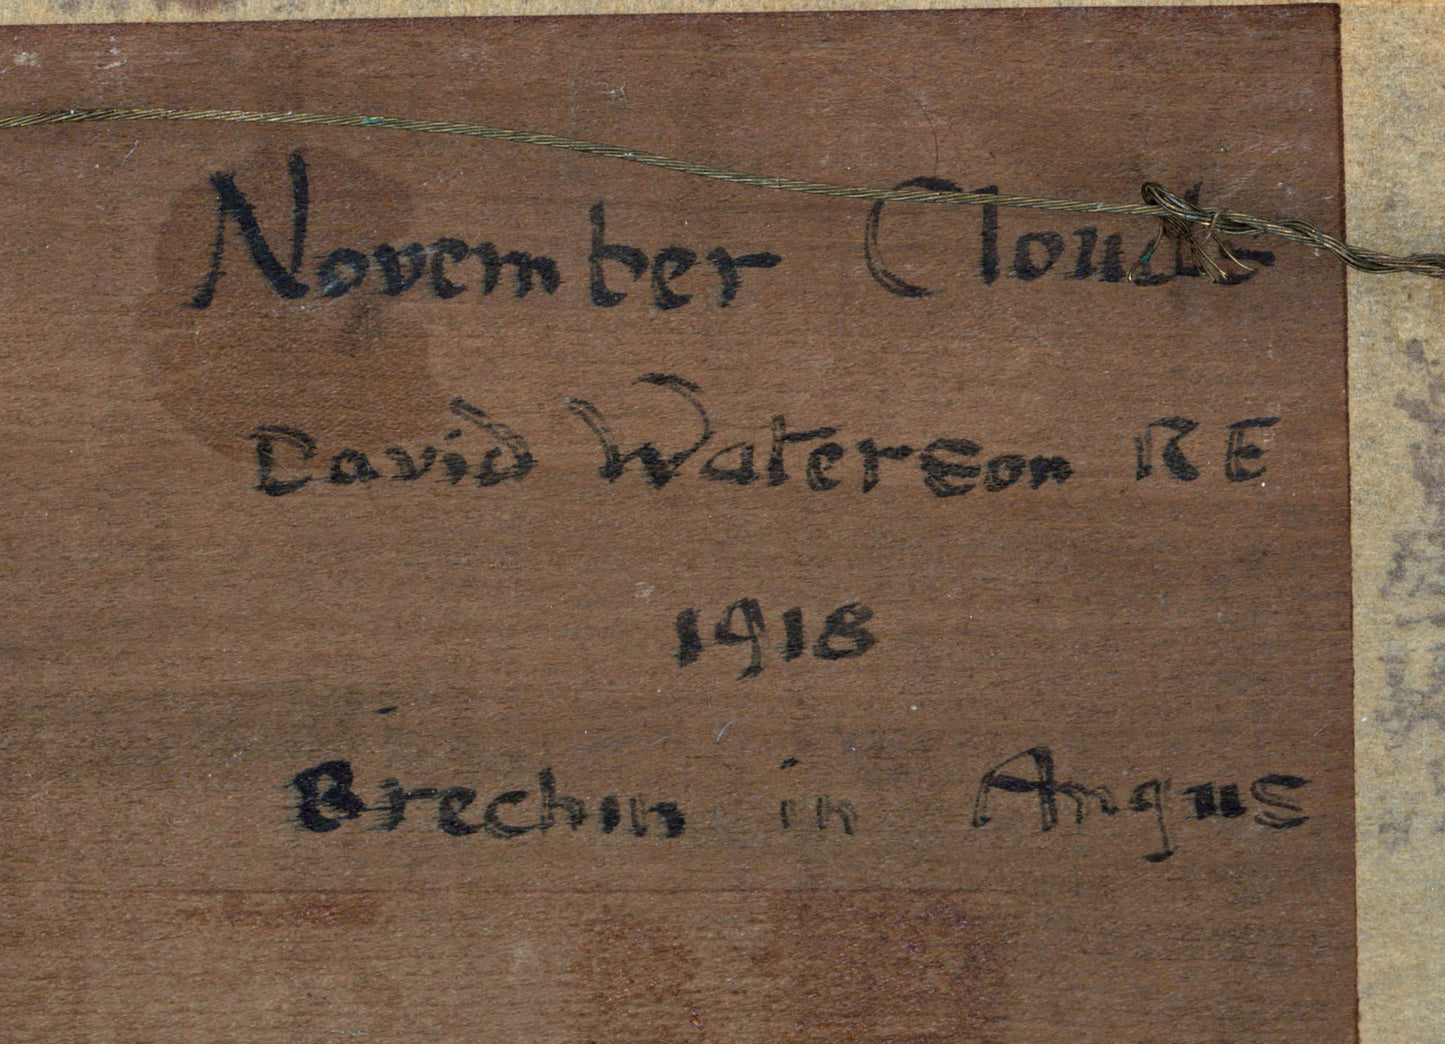 November Clouds
David Waterson RE
1918
Brechin in Angus